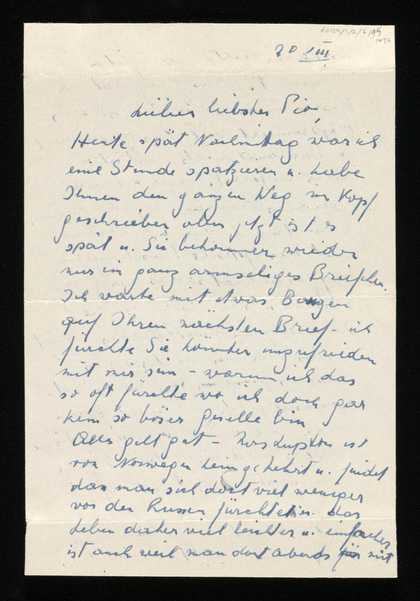 20 III.
liebster Pio,
Heute spät Nachmittag war ich
eine Stunde spazieren u. habe
Ihnen den ganzen Weg im Kopf
geschrieben aber jetzt ist es
spät u. Sie bekommen wieder
nur ein ganz armseliges Briefchen.
Ich warte mit etwas Bangen
auf Ihren nächsten Brief - ich
fürchte Sie könnten unzufrieden
mit mir sein - warum ich das
so oft fürchte wo ich doch gar
kein so böser Geselle bin
Alles geht gut - ist
von Norwegen heimgekehrt u. findet
dass man sich dort viel weniger
vor den Russen fürchtet u. das
Leben daher viel leichter u. einfacher
ist auch weil man dort abends mit